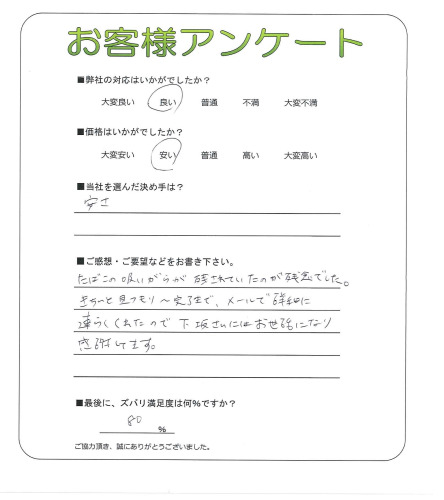 お客様アンケート
■弊社の対応はいかがでしたか？
大変良い 良い 普通 不満 大変不満
■価格はいかがでしたか？
大変安い 安い 普通 高い 大変高い
■当社を選んだ決め手は？
安さ
■ご感想・ご要望などをお書き下さい。
たばこの吸いがらが残されていたのが残念でした。
きちっと見つもり～完了まで、メールで詳細に
連らくくれたので下坂さんにはお世話になり
感謝してます。
■最後に、ズバリ満足度は何％ですか？
80 %
ご協力頂き、誠にありがとうございました。